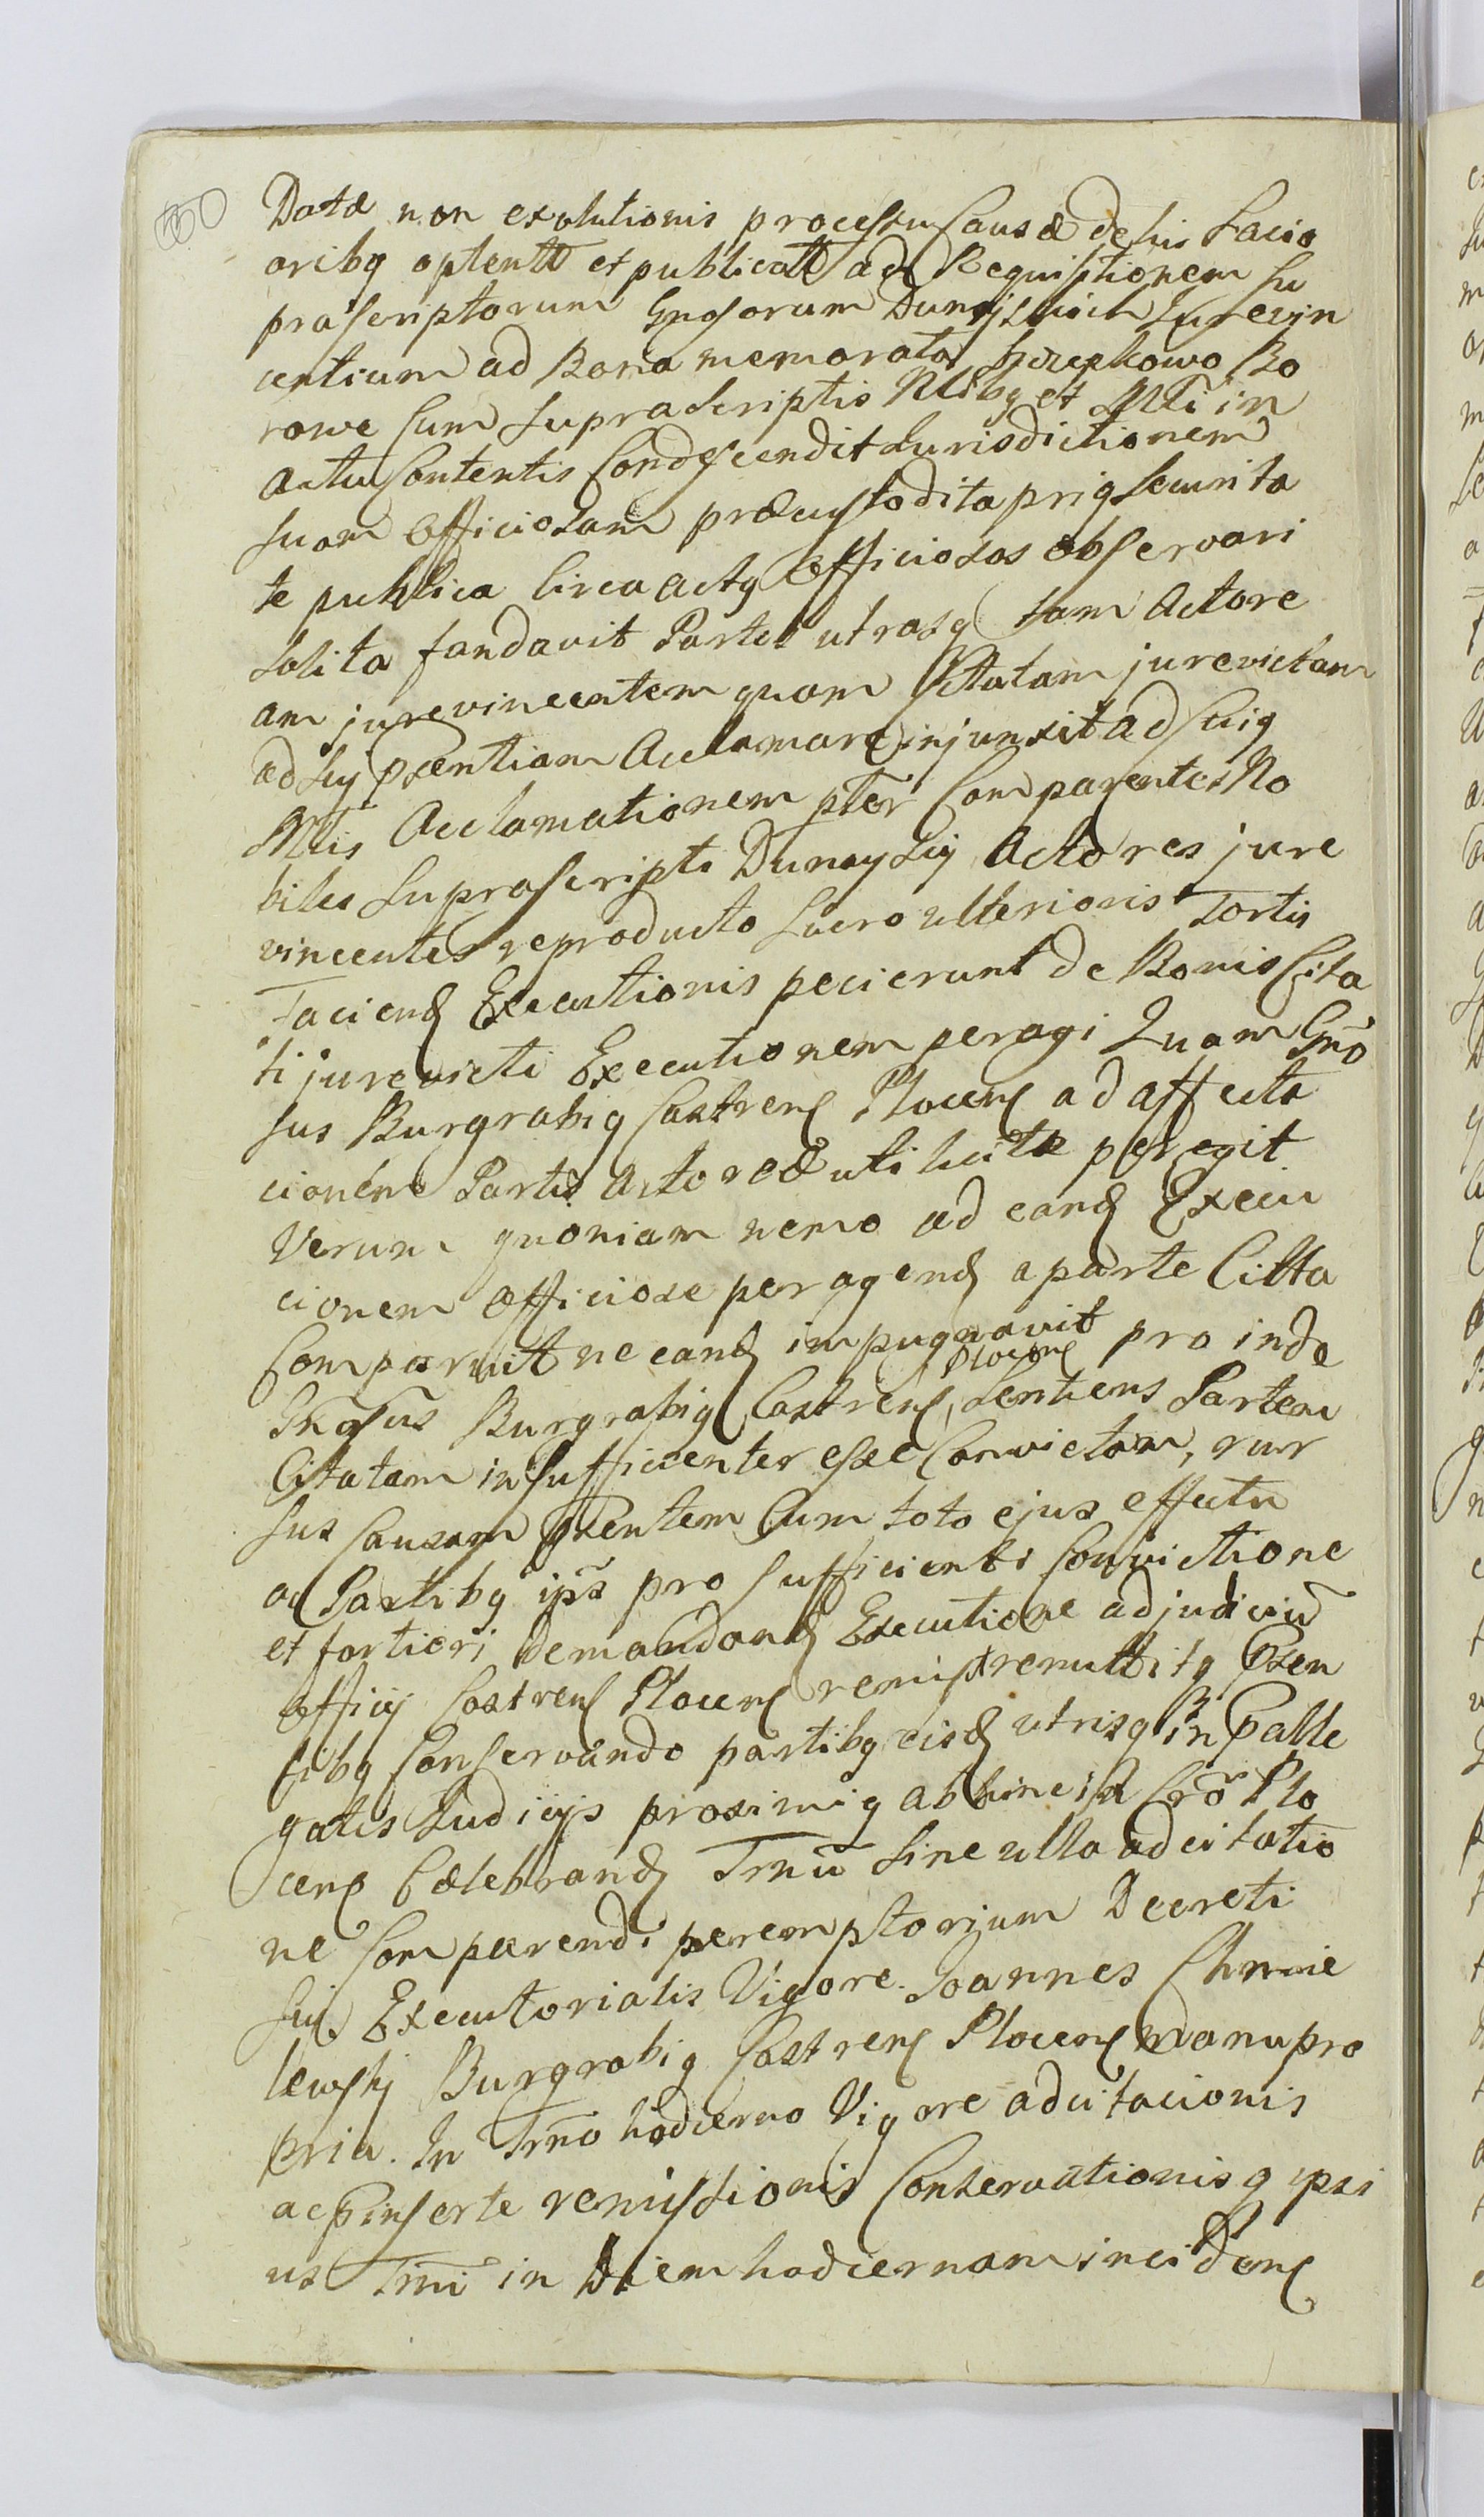 Datæ non exolutionis processu Causæ de his Lacio
oribg optentæ et publicatæ ad Requisitionem Su
prascriptorum Gnosorum Dunajskich Jurevin
centium ad Bona memorata Szczepkowo Bo
rowe Cum Suprascriptis Mlibg et Mli in
actu Contentis Condescendit Jurisdictionem
Suam Officiosam præcustodita prig Securita
te publica Circa actg Officiosos observari
Solita fundavit Partes utrasq tam Actore
am jurevincentem quam Citatam jurevictam
ad Sey pxentiam Acclamare injunxit ad Cuig
Mlis Acclamationem pter Comparentes No
biles Suprascripti Dunayscy Actores jure
vincentes reproducto Lucro ulterioris Fortis
Faciend Executionis pecierunt de Bonis Cita
ti jurevicti Executionem peragi Quam Gno
sus Burgrabig Castrens Plocens ad affecta
cionem Partis Actoreæ uti licitæ peregit
Verum quoniam nemo ad eand Execu
cionem Officiose peragend a parte Citta
Comparuit ne eand impugnavit pro inde
Gnosus Burgrabig Castrens Plocens Sentiens Partem
Citatam insufficienter esse Convictam, rur
sus Causam pxentem Cum toto ejus effectu
ac Partibg ipis pro Sufficienti Convictione
et fortiori demandand Executione ad judiciu
Officij Castrens Plocens remist remittitq Pxen
tibg Conservando partibg eisd utrisq in Palle
gatis Judicijs proximig abhinc in Cro Plo
cens Cælebrand Trnu Sine ulla adcitatio
ne Comparendi peremptorium Decreti
Sui Executorialis Vigore. Joannes Chmie
lewskj Burgrabig Castrens Plocens manu pro
pria. In Trno hodierno Vigore adcitacionis
ac pinserte remissionis Conservationisq ipsi
us Trni in Diem hodiernam incidens